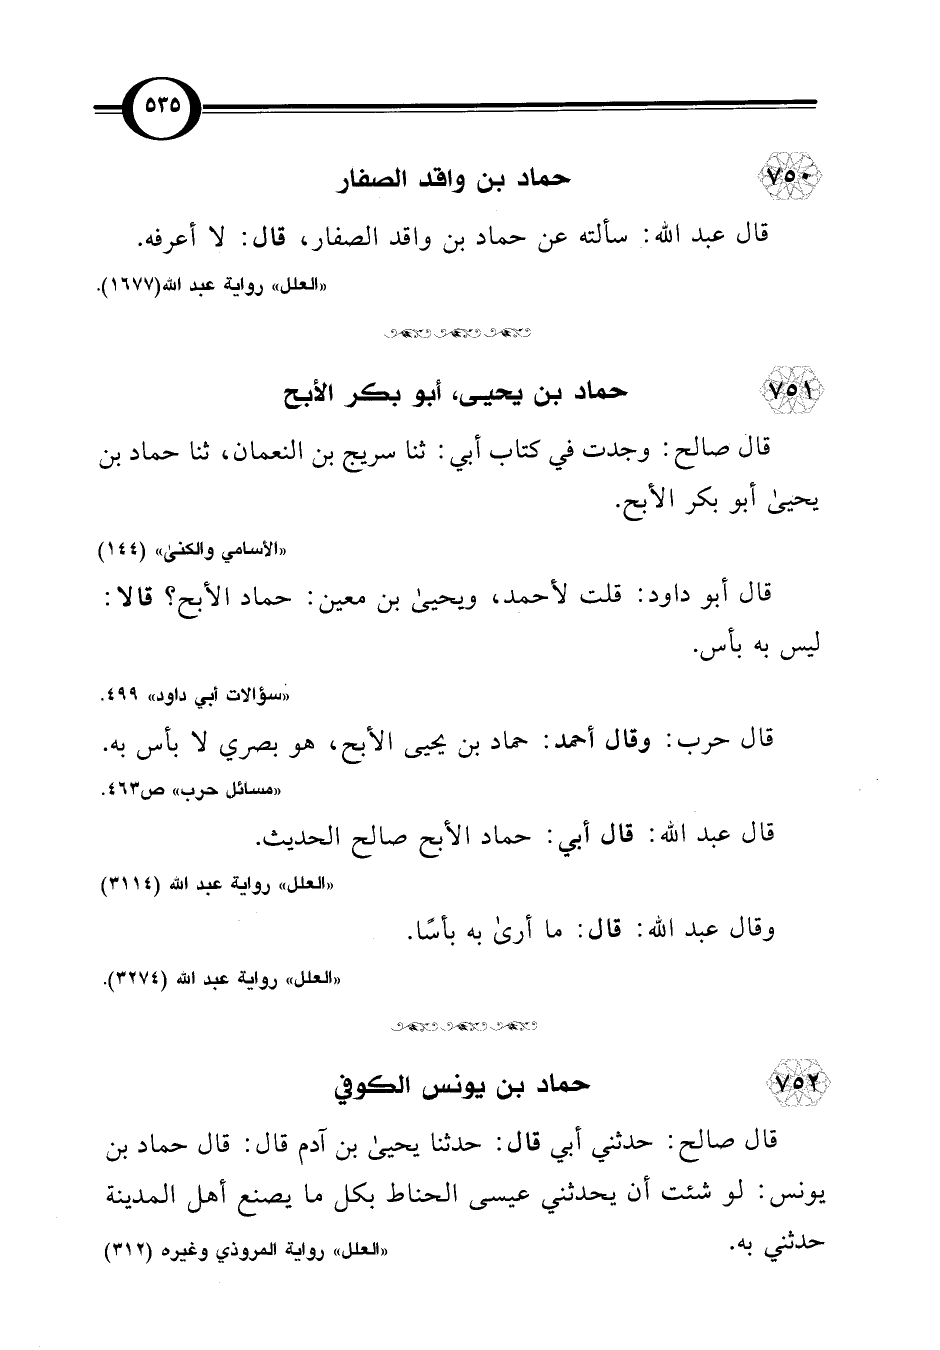 ٥٣٥
٧٥٠ حماد بن واقد الصفار
قال عبد الله: سألته عن حماد بن واقد الصفار، قال: لا أعرفه.
«العلل» رواية عبد الله(١٦٧٧).
٧٥١ حماد بن يحيى، أبو بكر الأبح
قال صالح: وجدت في كتاب أبي: ثنا سريج بن النعمان، ثنا حماد بن
يحيىٰ أبو بكر الأبح.
«الأسامي والكنىٰ» (١٤٤)
قال أبو داود: قلت لأحمد، ويحيىٰ بن معين: حماد الأبح؟ قالا:
ليس به بأس.
«سؤالات أبي داود» ٤٩٩.
قال حرب: وقال أحمد: حماد بن يحيى الأبح، هو بصري لا بأس به.
«مسائل حرب» ص٤٦٣.
قال عبد الله: قال أبي: حماد الأبح صالح الحديث.
«العلل» رواية عبد الله (٣١١٤)
وقال عبد الله: قال: ما أرىٰ به بأسًا.
«العلل» رواية عبد الله (٣٢٧٤).
٧٥٢ حماد بن يونس الكوفي
قال صالح: حدثني أبي قال: حدثنا يحيىٰ بن آدم قال: قال حماد بن
يونس: لو شئت أن يحدثني عيسى الحناط بكل ما يصنع أهل المدينة
حدثني به. «العلل» رواية المروذي وغيره (٣١٢)